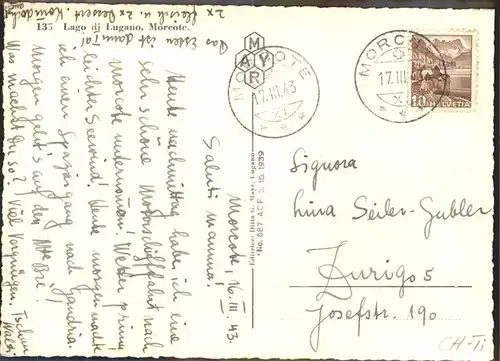 135 Lago di Lugano. Morcote.
Morcote, 16. III. 43.
Saluti mamma!
Heute nachmittag habe ich eine
sehr schöne Motorschifffahrt nach
Morcote unternommen! Wetter prima
leichter Seewind! Heute morgen machte
ich einen Spaziergang nach Gandria.
Morgen geht's auf den Mte Bré!
Was machst Du so? Viel Vergnügen. Tschau
Das Essen ist dann Ia!
2x Fleisch u. 2x Dessert.
MAYR
Editrice: Ditta G. Mayr, Lugano.
No. 687 ACF. 3. 10. 1939
MORCOTE
17.III.43
XI
MORCOTE
17.III.43
XI
10 HELVETIA
Signora
Lina Seiler-Gubler
Zurigo 5
Josefstr. 190
CH-Ti